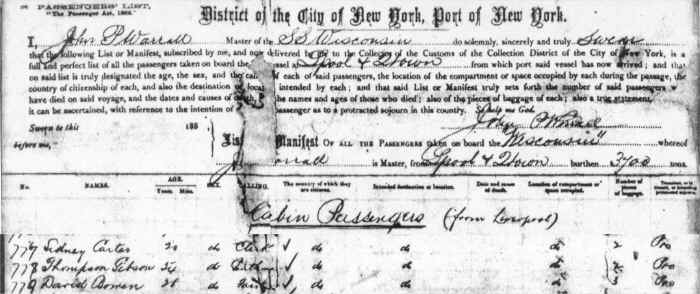 PASSENGERS' LIST,
"The Passenger Act, 1882."
District of the City of New York, Port of New York.
I, John P Worrall Master of the SS Wisconsin do solemnly, sincerely and truly Swear
that the following List or Manifest, subscribed by me, and now delivered by me to the Collector of the Customs of the Collection District of the City of New York, is a
full and perfect list of all the passengers taken on board the vessel at Lpool & Qtown from which port said vessel has now arrived; and that
on said list is truly designated the age, the sex, and the calling of each of said passengers, the location of the compartment or space occupied by each during the passage, the
country of citizenship of each, and also the destination or location intended by each; and that said List or Manifest truly sets forth the number of said passengers
have died on said voyage, and the dates and causes of death, the names and ages of those who died; also of the pieces of baggage of each; also a true statement,
it can be ascertained, with reference to the intention of passenger as to a protracted sojourn in this country. So help me God.
Sworn to this 188
John P Worrall
before me,
List Manifest OF ALL THE PASSENGERS taken on board the "Wisconsin" whereof
is Master, from Lpool & Qtown burthen 3700 tons.
No. NAMES. AGE. Years. Mths. SEX. CALLING. The country of which they are citizens. Intended destination or location. Date and cause of death. Location of compartment or space occupied. Number of pieces of baggage.
Cabin Passengers (from Liverpool)
777 Sidney Carter 20 do Clerk do do do 2 Pro
778 Thompson Gibson 24 do do do do 2 Pro
779 David Bowen 28 do do do do 3 Pro